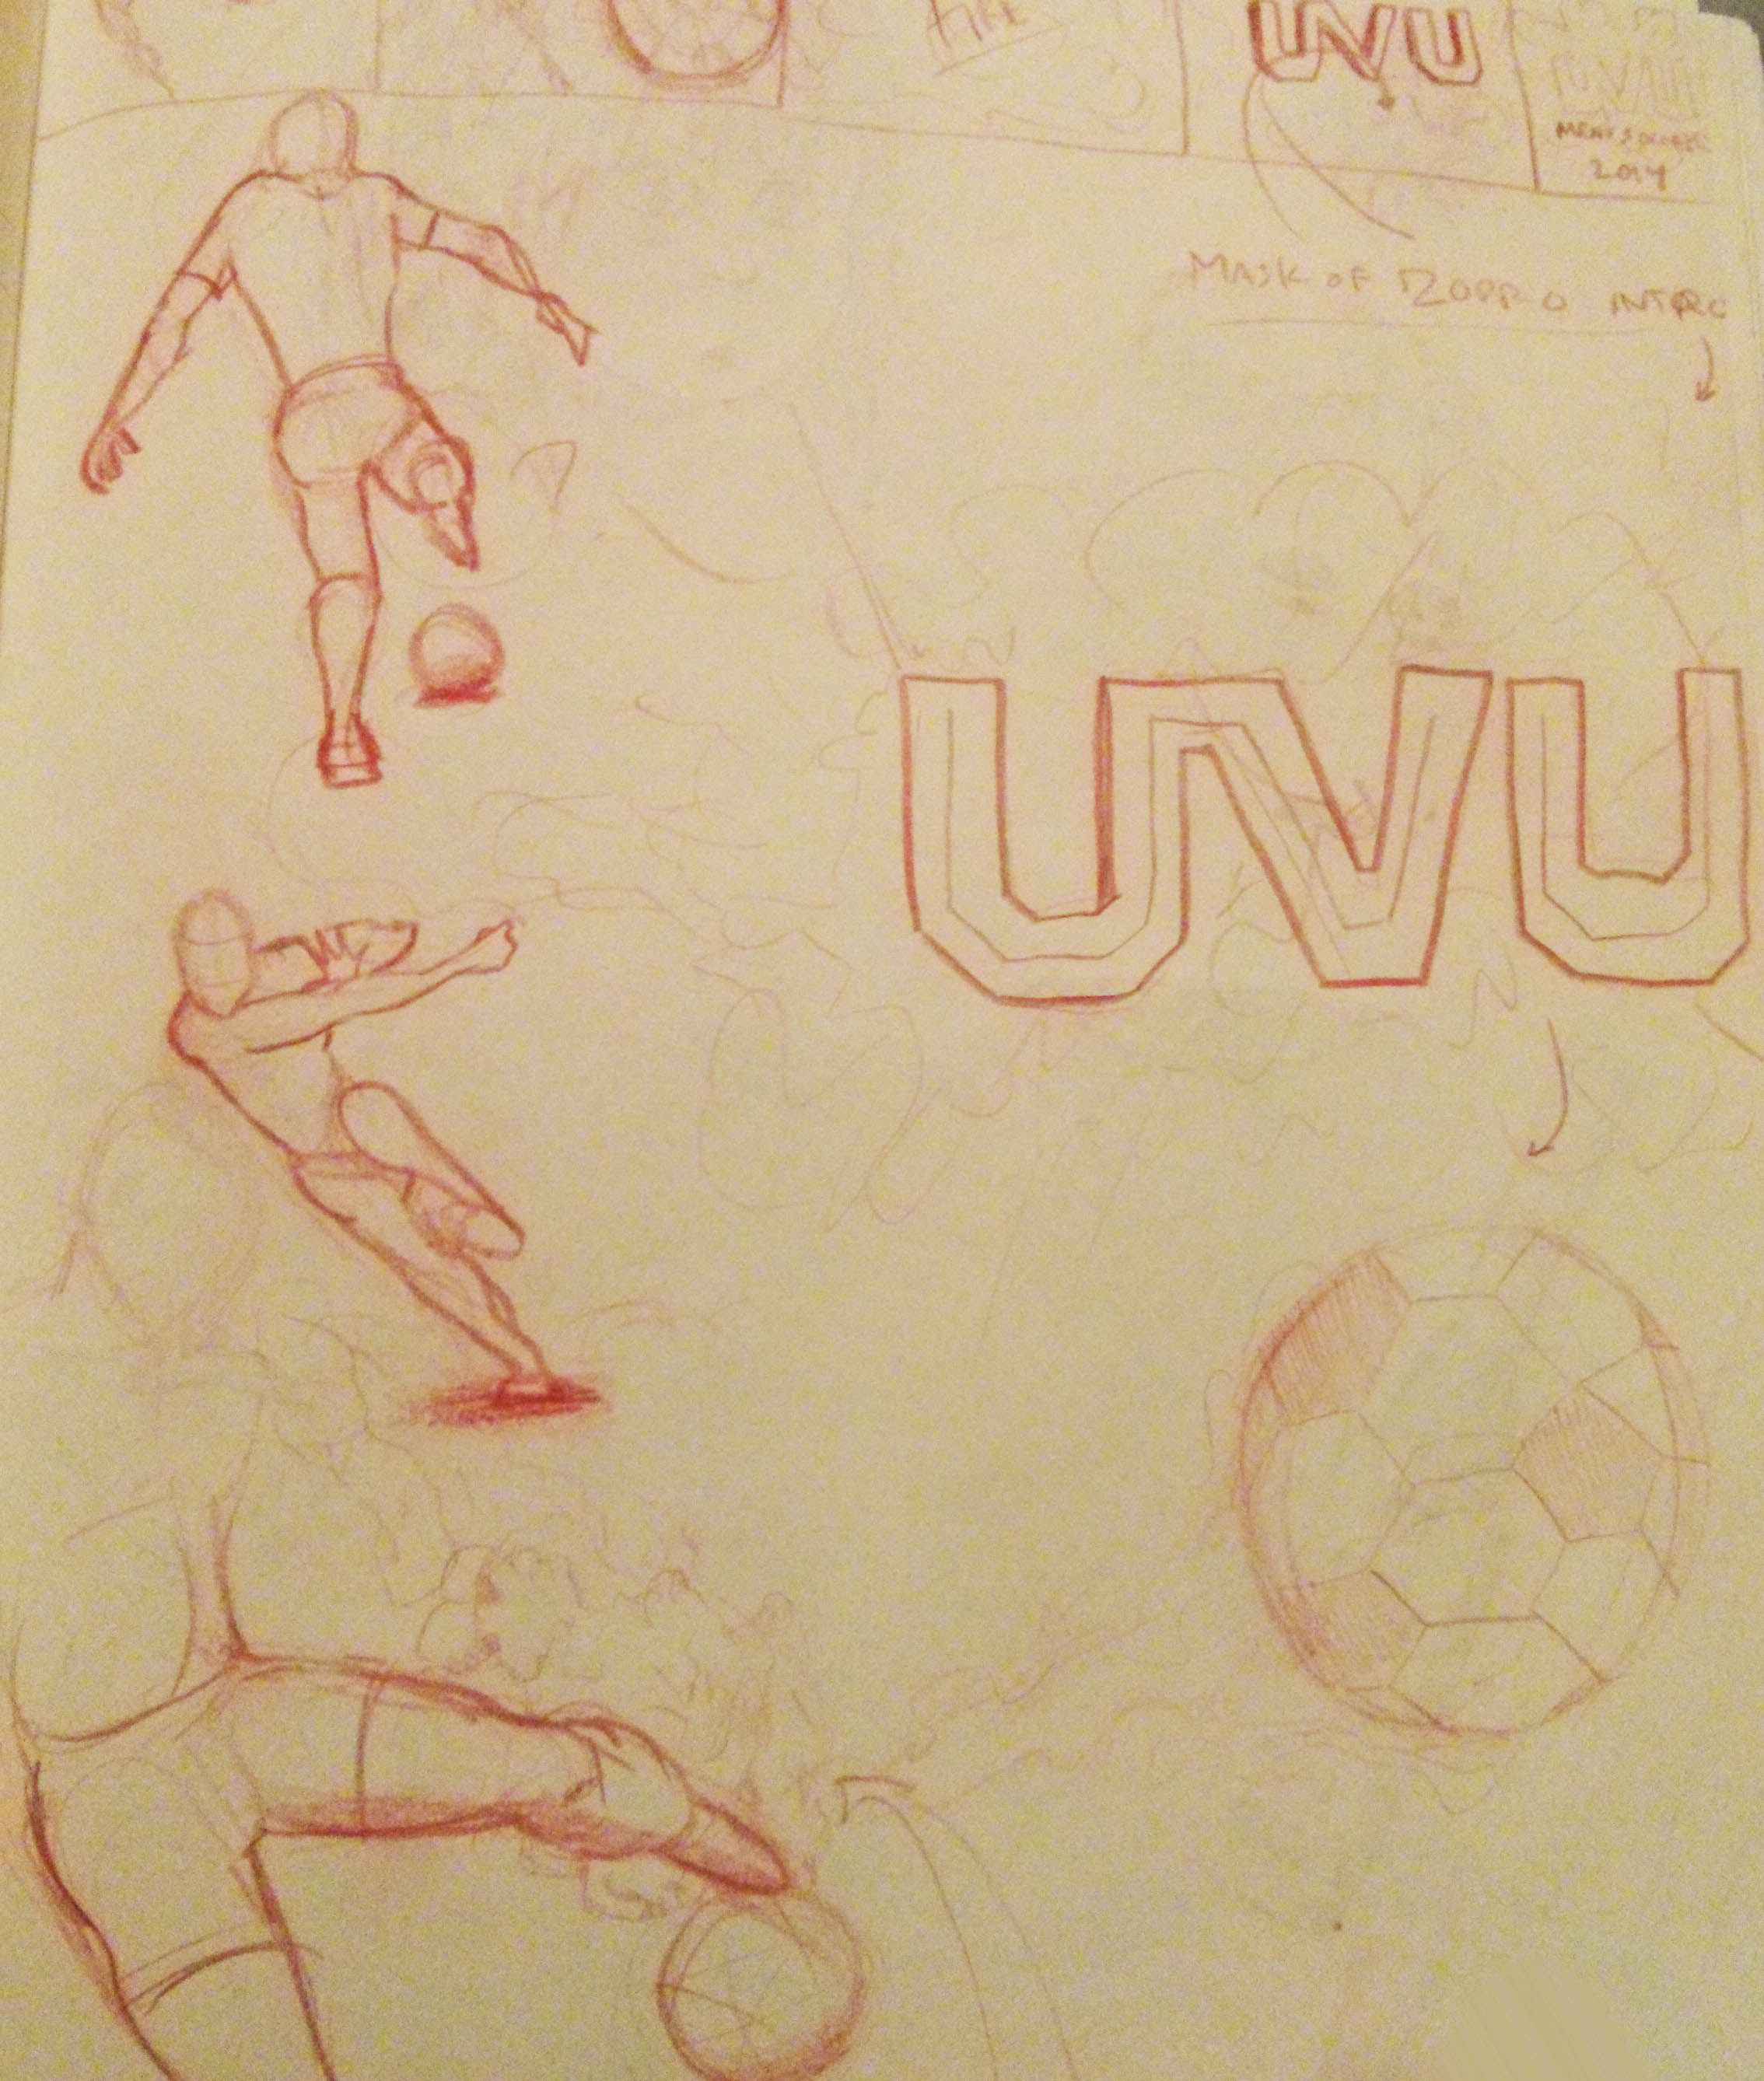 FIRE
UVU
UVU
MEN'S SOCCER
2014
MASK OF ZORRO INTRO
UVU